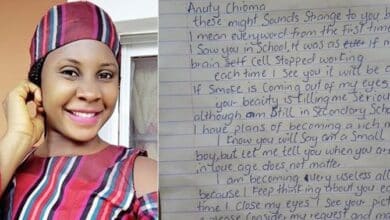 Anuty Chioma
these might Sounds Strange to you but
I mean everyword from the First time
I Saw you in School, it was as if my
brain Self Cell Stopped working
each time I See you it will be as
if Smoke is Coming out of my eyes
your beauty is killing me Seriously
although am Still in Secondary School
I have plans of becoming a rich m
I know you will Say am a Small
boy, but Let me tell you when you are
in Love age does not matter.
I am becoming very useless al
because I Keep thinking about you eve
time I Close my eyes I See your
please Consider my request and